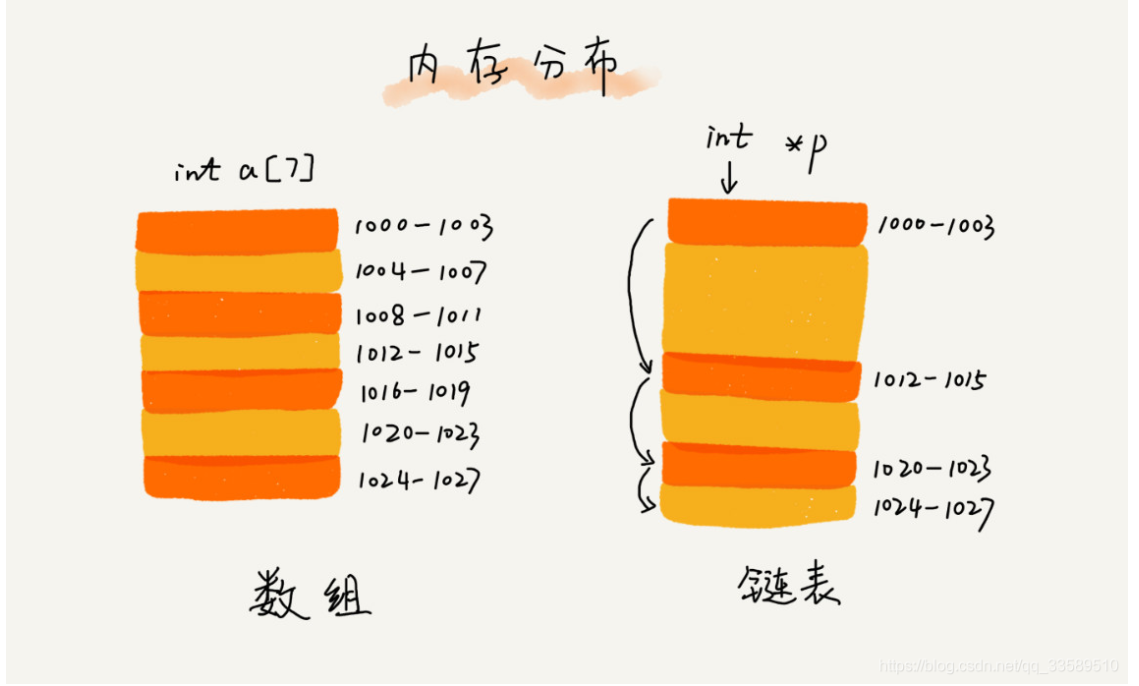 内存分布
int a[7]
1000-1003
1004-1007
1008-1011
1012-1015
1016-1019
1020-1023
1024-1027
数组
int *p
1000-1003
1012-1015
1020-1023
1024-1027
链表
https://blog.csdn.net/qq_33589510